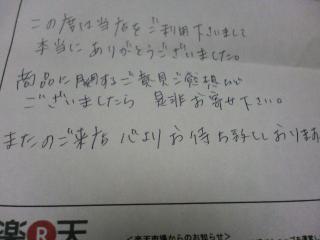 この度は当店をご利用下さいまして
本当にありがとうございました。
商品に関するご意見ご感想など
ございましたら 是非お寄せ下さい。
またのご来店 心よりお待ち致しております
楽R天
＜楽天市場からのお知らせ＞